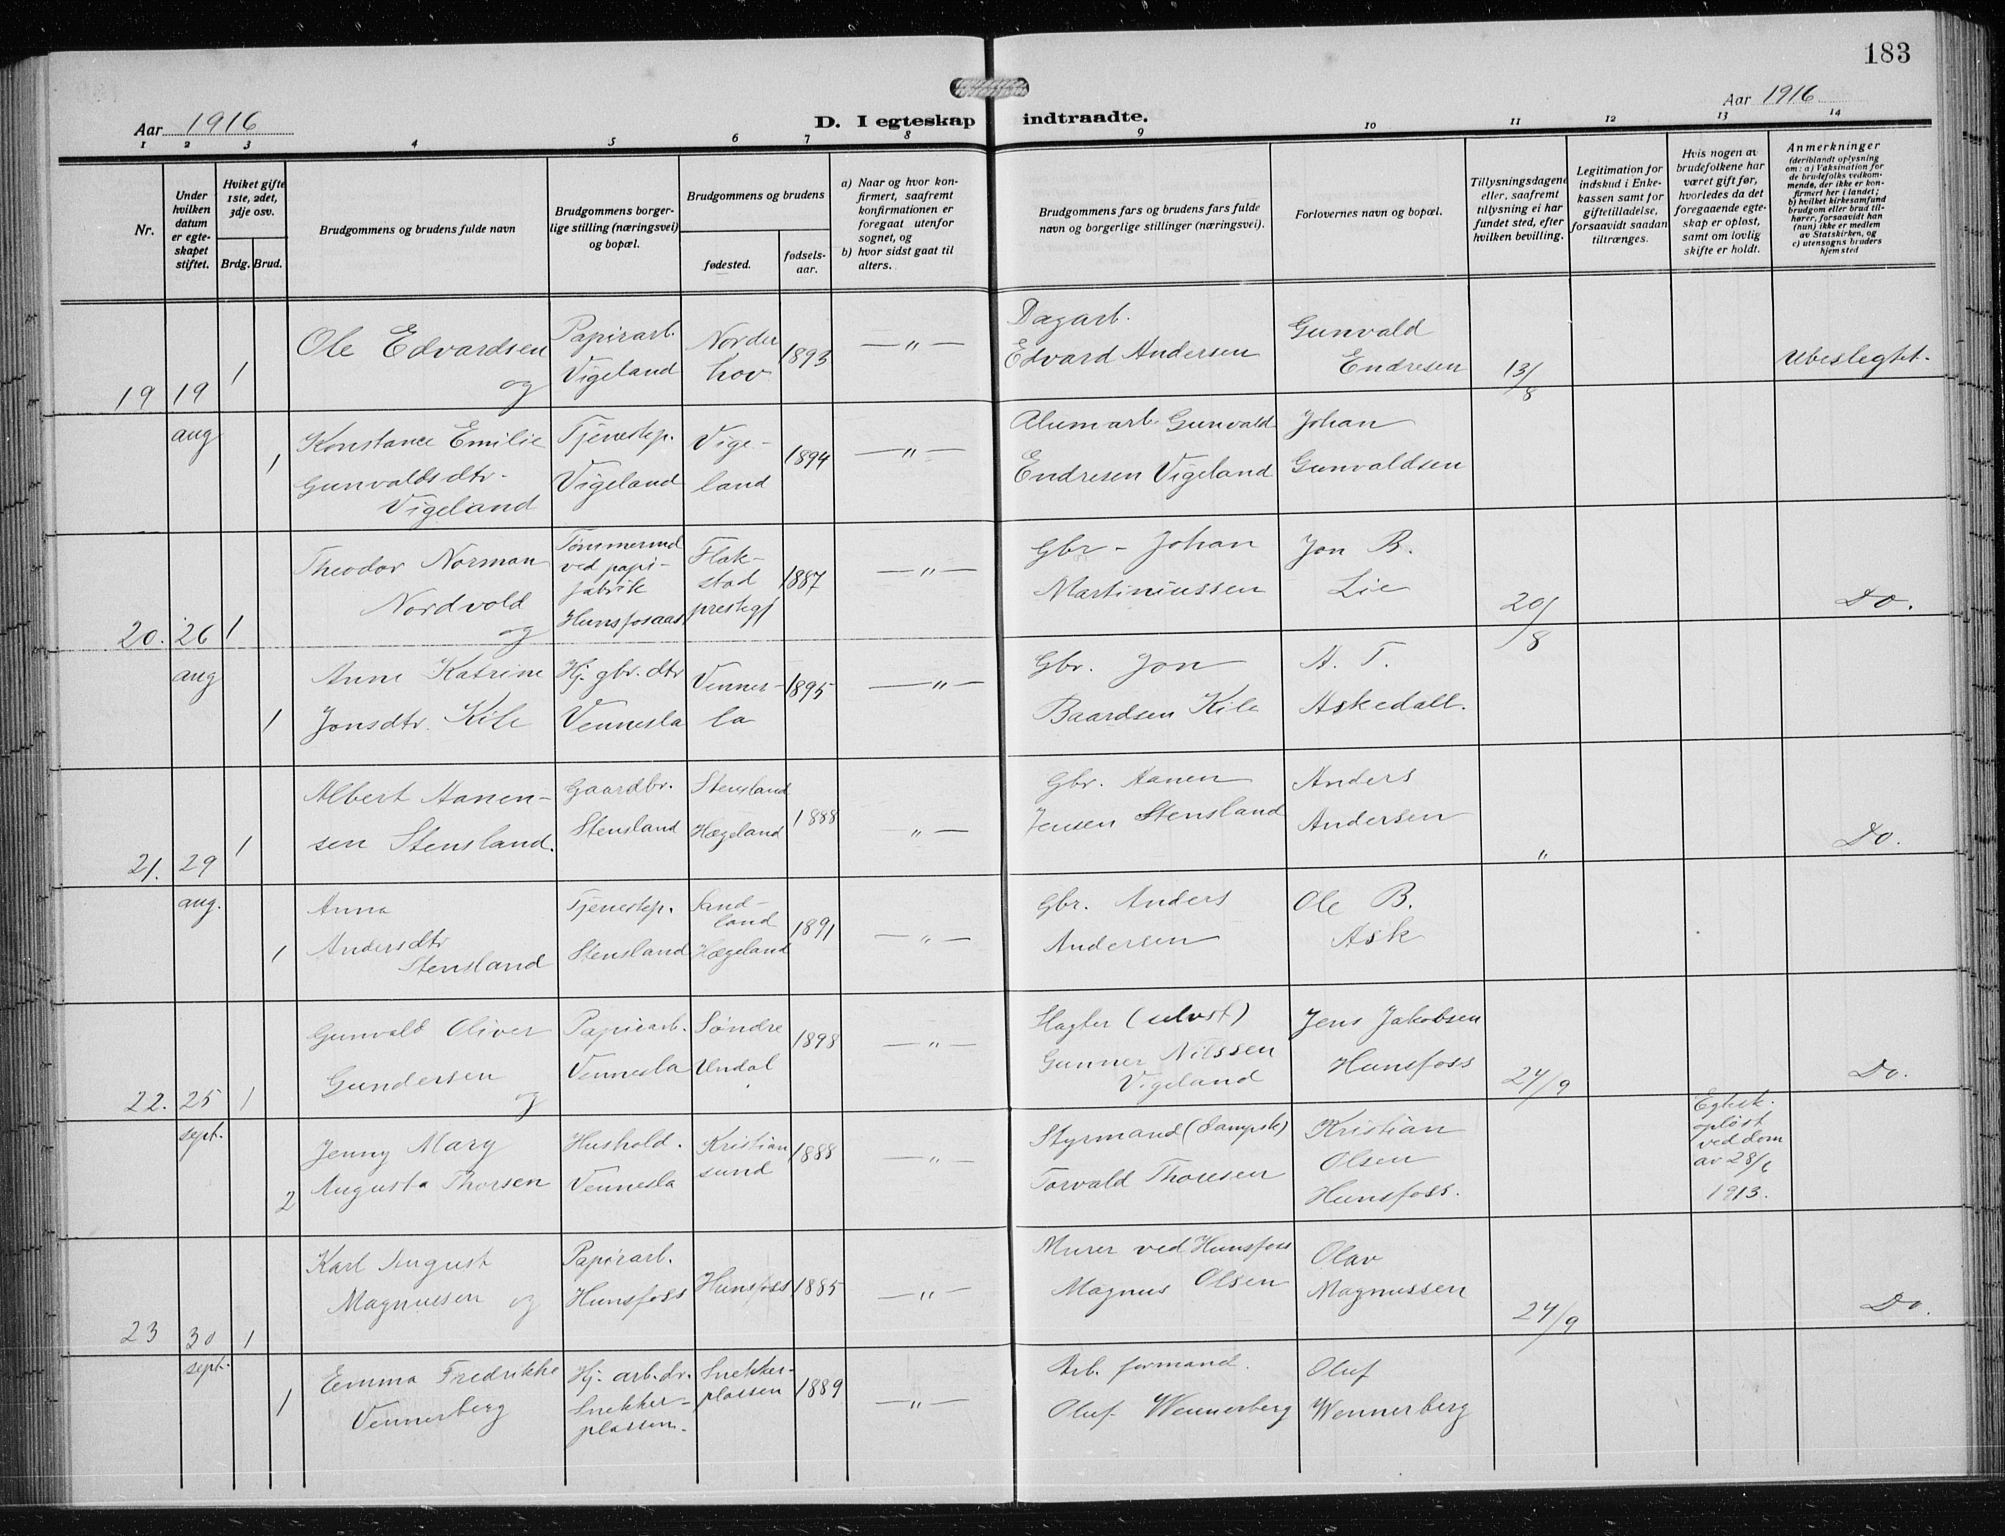 183
Aar 1916
D. I egteskap indtraadte.
Aar 1916
1 2 3 4 5 6 7 8 9 10 11 12 13 14
Nr.
Under hvilken datum er egteskapet stiftet.
Hviket gifte 1ste, 2det, 3dje osv.
Brdg. Brud.
Brudgommens og brudens fulde navn
Brudgommens borgerlige stilling (næringsvei) og bopæl.
Brudgommens og brudens
fødested.
fødselsaar.
a) Naar og hvor konfirmert, saafremt konfirmationen er foregaat utenfor sognet, og
b) hvor sidst gaat til alters.
Brudgommens fars og brudens fars fulde navn og borgerlige stillinger (næringsvei).
Forlovernes navn og bopæl.
Tillysningsdagene eller, saafremt tillysning ei har fundet sted, efter hvilken bevilling.
Legitimation for indskud i Enkekassen samt for giftetilladelse, forsaavidt saadan tiltrænges.
Hvis nogen av brudefolkene har været gift før, hvorledes da det foregaaende egteskap er opløst, samt om lovlig skifte er holdt.
Anmerkninger
(deriblandt oplysning om: a) Vaksination for de brudefolks vedkommende, der ikke er konfirmert her i landet; b) hvilket kirkesamfund brudgom eller brud tilhører, forsaavidt han (hun) ikke er medlem av Statskirken, og c) utensogns bruders hjemsted
19 19 aug 1 Ole Edvardsen og
Papirarb. Vigeland
Norderhov 1893 — " —
Dagarb. Edvard Andersen
Gunvald Endresen
13/8
Ubeslegtet.
1 Konstance Emilie Gunvaldsdtr. Vigeland
Tjenestep. Vigeland
Vigeland 1894 — " —
Alumarb. Gunvald Endresen Vigeland
Johan Gunvaldsen
20. 26 aug 1 Theodor Norman Nordvold og
Tømmermd ved papirfabrik Hunsfosaas
Flakstad prestegj 1887 — " —
Gbr - Johan Martiniussen
Jon B. Lie
20/8
Do.
1 Anne Katrine Jonsdtr. Kile
Hj. gbr. dtr Vennesla
Vennesla 1895 — " —
Gbr. Jon Baardsen Kile
A. T. Askedall.
21. 29 aug. 1 Albert Aanensen Stensland.
Gaardbr. Stensland
Stensland Hægeland 1888 — " —
Gbr. Aanen Jensen Stensland
Anders Andersen
"
Do.
1 Anna Andersdtr Stensland
Tjenestep. Stensland
Sandland Hægeland 1891 — " —
Gbr. Anders Andersen
Ole B. Ask
22. 25 sept. 1 Gunvald Oliver Gundersen og
Papirarb. Vennesla
Søndre Undal 1898 — " —
Slagter (selvst) Gunner Nilssen Vigeland
Jens Jakobsen Hunsfoss
24/9
Do.
2 Jenny Mary Augusta Thorsen
Hushold. Vennesla
Kristiansund 1888 — " —
Styrmand (dampsk) Torvald Thorsen
Kristian Olsen Hunsfoss.
Egtesk. opløst ved dom av 28/6 1913.
23 30 sept. 1 Karl August Magnussen og
Papirarb. Hunsfoss
Hunsfoss 1885 — " —
Murer ved Hunsfoss Magnus Olsen
Olav Magnussen
24/9
Do.
1 Emma Fredrikke Vennerberg
Hj. arb. dr. Snekkerplassen.
Snekkerplassen 1889 — " —
Arb. formand. Oluf Wennerberg
Oluf Wennerberg